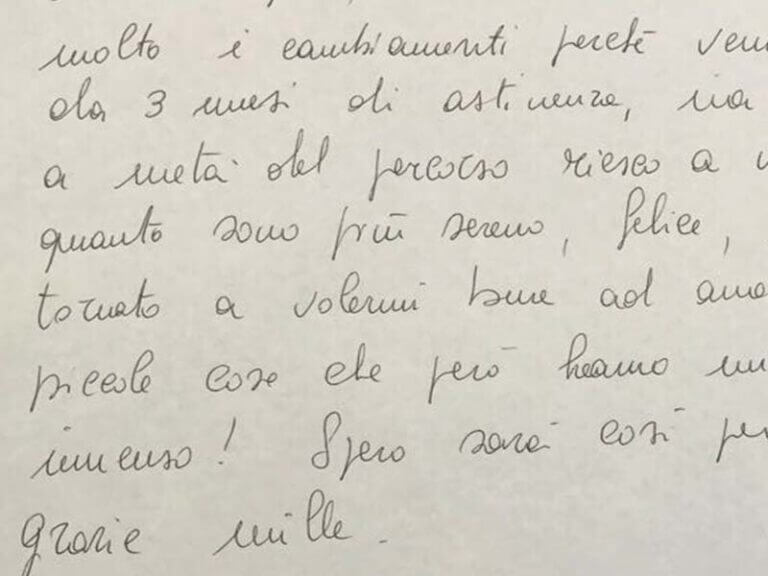 molto i cambiamenti perché
da 3 mesi di astinenza, ma
a metà del percorso riesco a
quanto sono più sereno, felice,
tornato a volermi bene ad
piccole cose che però hanno
immenso! Spero sarà così
Grazie mille.